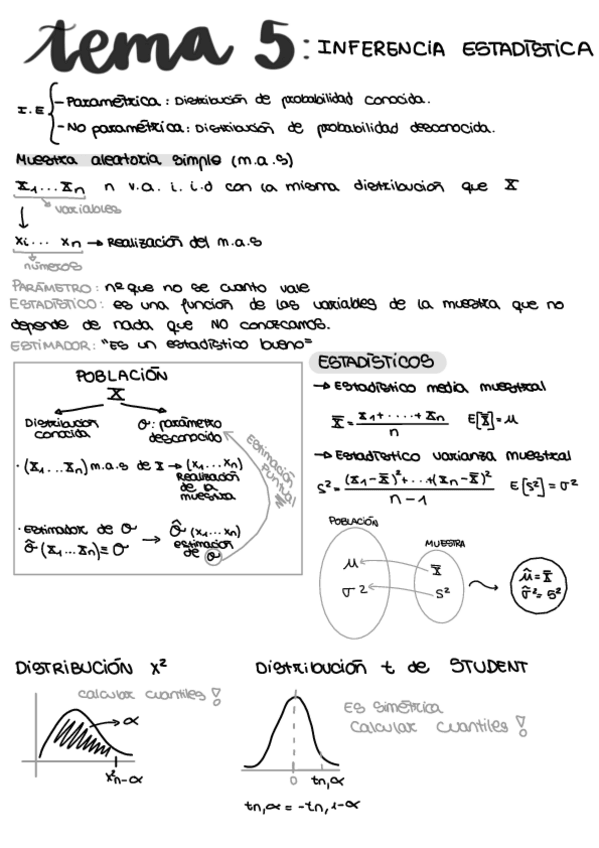 tema 5: INFERENCIA ESTADÍSTICA
I.E { - Paramétrica: Distribución de probabilidad conocida.
- No paramétrica: Distribución de probabilidad desconocida.
Muestra aleatoria simple (m.a.s)
X₁...Xₙ n v.a. i.i.d con la misma distribución que X
variables
xᵢ... xₙ → Realización del m.a.s
números
PARÁMETRO: nº que no se cuanto vale
ESTADÍSTICO: es una función de las variables de la muestra que no
depende de nada que NO conozcamos.
ESTIMADOR: "Es un estadístico bueno"
POBLACIÓN
X
Distribución conocida
σ: parámetro desconocido
· (X₁...Xₙ) m.a.s de X → (x₁...xₙ)
Realización de la muestra
Estimación puntual
· Estimador de σ → σ̂ (x₁...xₙ)
σ̂ (X₁...Xₙ) = σ
estimación de σ
ESTADÍSTICOS
→ Estadístico media muestral
X̄ = X₁+.....+Xₙ / n E[X̄] = μ
→ Estadístico varianza muestral
S² = (X₁-X̄)²+...+(Xₙ-X̄)² / n-1 E[S²] = σ²
POBLACIÓN
MUESTRA
μ X̄
σ² S²
μ̂ = X̄
σ̂² = S²
DISTRIBUCIÓN X²
calcular cuantiles!
α
X²n-α
Distribución t de STUDENT
Es simétrica
Calcular cuantiles!
0 tn,α
tn,α = -tn,1-α